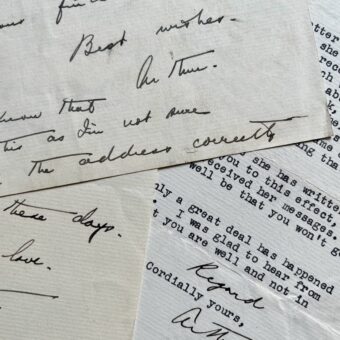 Best wishes.
Arthur.
know that
this as I'm not sure
the address correctly
these days.
love.
tter
she
rece
ch
ab
k,
e
ing tha
she has writte
you to this effect,
received her messages.
well be that you won't g
ly a great deal has happened
I was glad to hear from
t you are well and not in
Regard
Cordially yours,
Arth